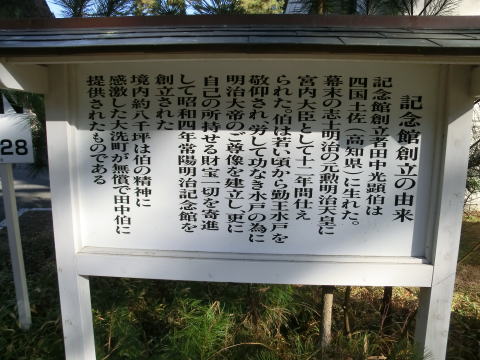 記念館創立の由来
記念館創立者田中光顕伯は
四国土佐(高知県)に生れた。
幕末の志士明治の元勲明治天皇に
宮内大臣として十一年間仕え
られた。伯は若い頃から勤王水戸を
敬仰され、労して功なき水戸の為に
明治大帝のご尊像を建立し、更に
自己の所持せる財宝一切を寄進
して昭和四年常陽明治記念館を
創立された
境内約八千坪は伯の精神に
感激した大洗町が無償で田中伯に
提供されたものである
28